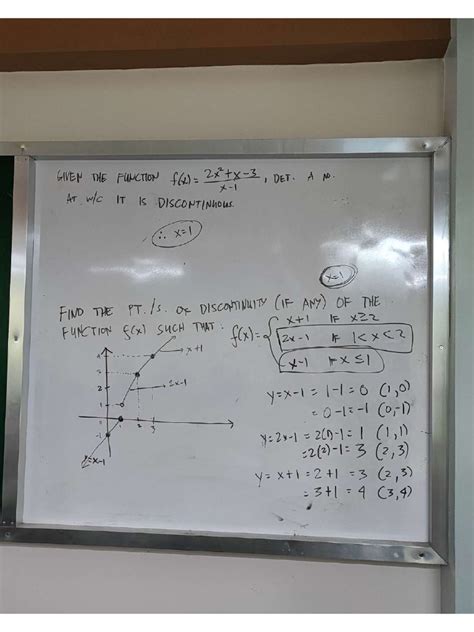 GIVEN THE FUNCTION f(x) = (2x² + x - 3)/(x - 1), DET. A NO.
AT W/C IT IS DISCONTINUOUS.
∴ x = 1
x=1
FIND THE PT./S. OF DISCONTINUITY (IF ANY) OF THE
FUNCTION f(x) SUCH THAT: f(x) = { x+1 IF x ≥ 2
2x-1 IF 1 < x < 2
x-1 IF x ≤ 1
x+1
2x-1
x-1
y = x-1 = 1-1 = 0 (1,0)
= 0-1 = -1 (0,-1)
y = 2x-1 = 2(1)-1 = 1 (1,1)
= 2(2)-1 = 3 (2,3)
y = x+1 = 2+1 = 3 (2,3)
= 3+1 = 4 (3,4)